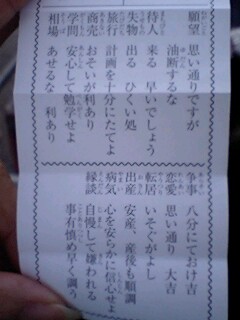 願望 思い通りですが
油断するな
待人 来る 早いでしょう
失物 出る ひくい処
旅行 計画を十分にたてよ
商売 おそいが利あり
学問 安心して勉学せよ
相場 あせるな 利あり
争事 八分にておけ吉
恋愛 思い通り 大吉
転居 いそぐがよし
出産 安産、産後も順調
病気 心を安らかに信心せよ
縁談 自慢して嫌われる
事有慎め早く調う